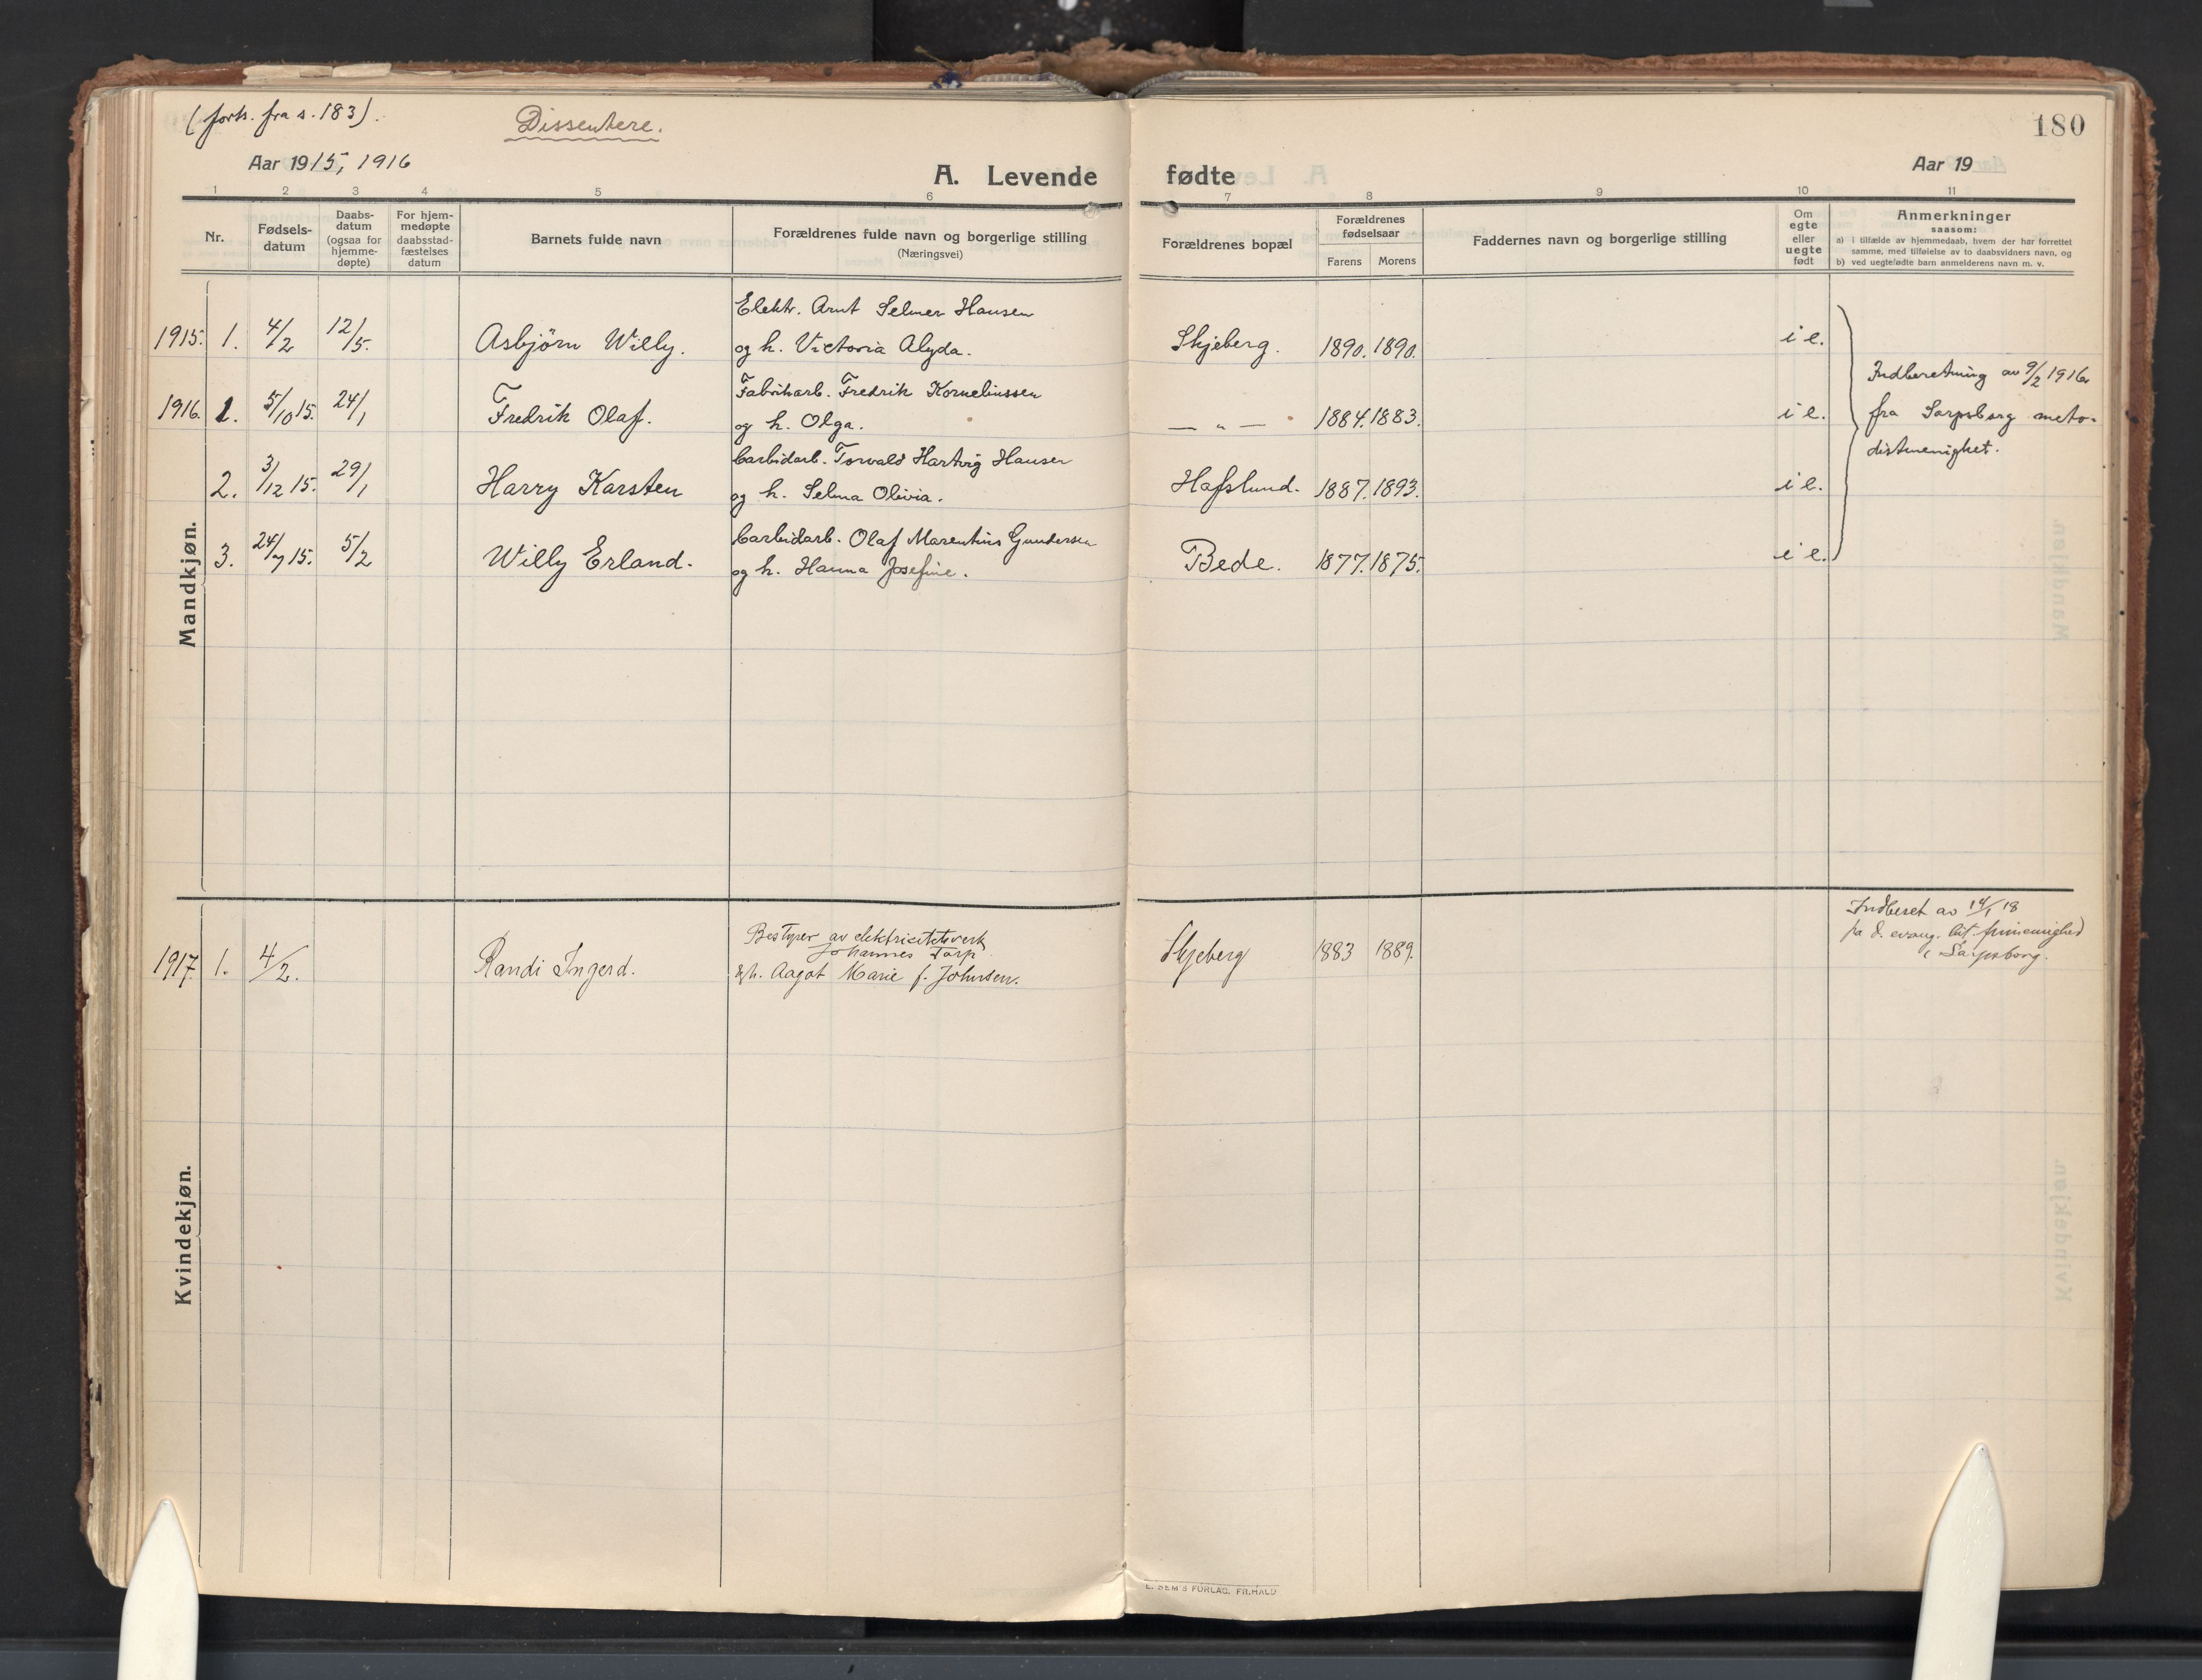 (forts. fra s. 183).
Dissentere.
180
Aar 1915, 1916
A. Levende fødte
Aar 19
1 2 3 4 5 6 7 8 9 10 11
Nr.
Fødsels-
datum
Daabs-
datum
(ogsaa for
hjemme-
døpte)
For hjem-
medøpte
daabsstad-
fæstelses
datum
Barnets fulde navn
Forældrenes fulde navn og borgerlige stilling
(Næringsvei)
Forældrenes bopæl
Forældrenes
fødselsaar
Farens Morens
Faddernes navn og borgerlige stilling
Om
egte
eller
uegte
født
Anmerkninger
saasom:
a) i tilfælde av hjemmedaab, hvem der har forrettet
samme, med tilføielse av to daabsvidners navn, og
b) ved uegtefødte barn anmelderens navn m. v.
Mandkjøn.
1915. 1. 4/2 12/5. Asbjörn Willy.
Elektr. Arnt Selmer Hansen
og h. Victoria Alyda.
Skjeberg. 1890. 1890. i e.
1916. 1. 5/10 15. 24/1 Fredrik Olaf.
Fabrikarb. Fredrik Korneliussen
og h. Olga.
— " — 1884. 1883. i e.
2. 3/12 15. 29/1 Harry Karsten
Carbidarb. Torvald Hartvig Hansen
og h. Selma Olivia.
Hafslund. 1887. 1893. i e.
3. 24/7 15. 5/2 Willy Erland.
Carbidarb. Olaf Marentius Gundersen
og h. Hanna Josefine.
Bede. 1877. 1875. i e.
Indberetning av 9/2 1916
fra Sarpsborg meto-
distmenighet.
Kvindekjøn.
1917. 1. 4/2. Randi Ingerd.
Bestyrer av elektricitetsverk
Johannes Torp
& h. Aagot Marie f. Johnsen.
Skjeberg 1883 1889.
Indberet av 14/1 18
fra d. evang. lut. frimenighed
i Sarpsborg.
E. SEM'S FORLAG, FR.HALD